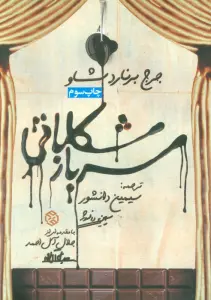 جرج برنارد شاو
چاپ سوم
سرباز شکلاتی
ترجمه:
سیمین دانشور
با مقدمه‌ای از
جلال آل احمد